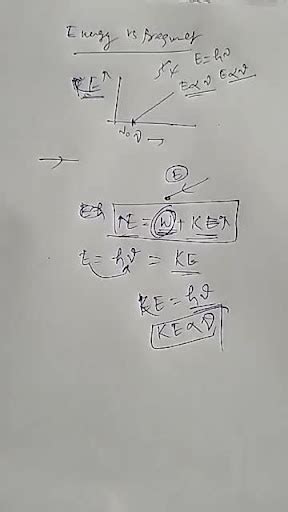 Energy vs frequency
E=hν
E∝ν E∝ν
KE↑
ν₀ ν →
→
E
↑E = W + KE↑
E = hν = KE
KE = hν
KE∝ν